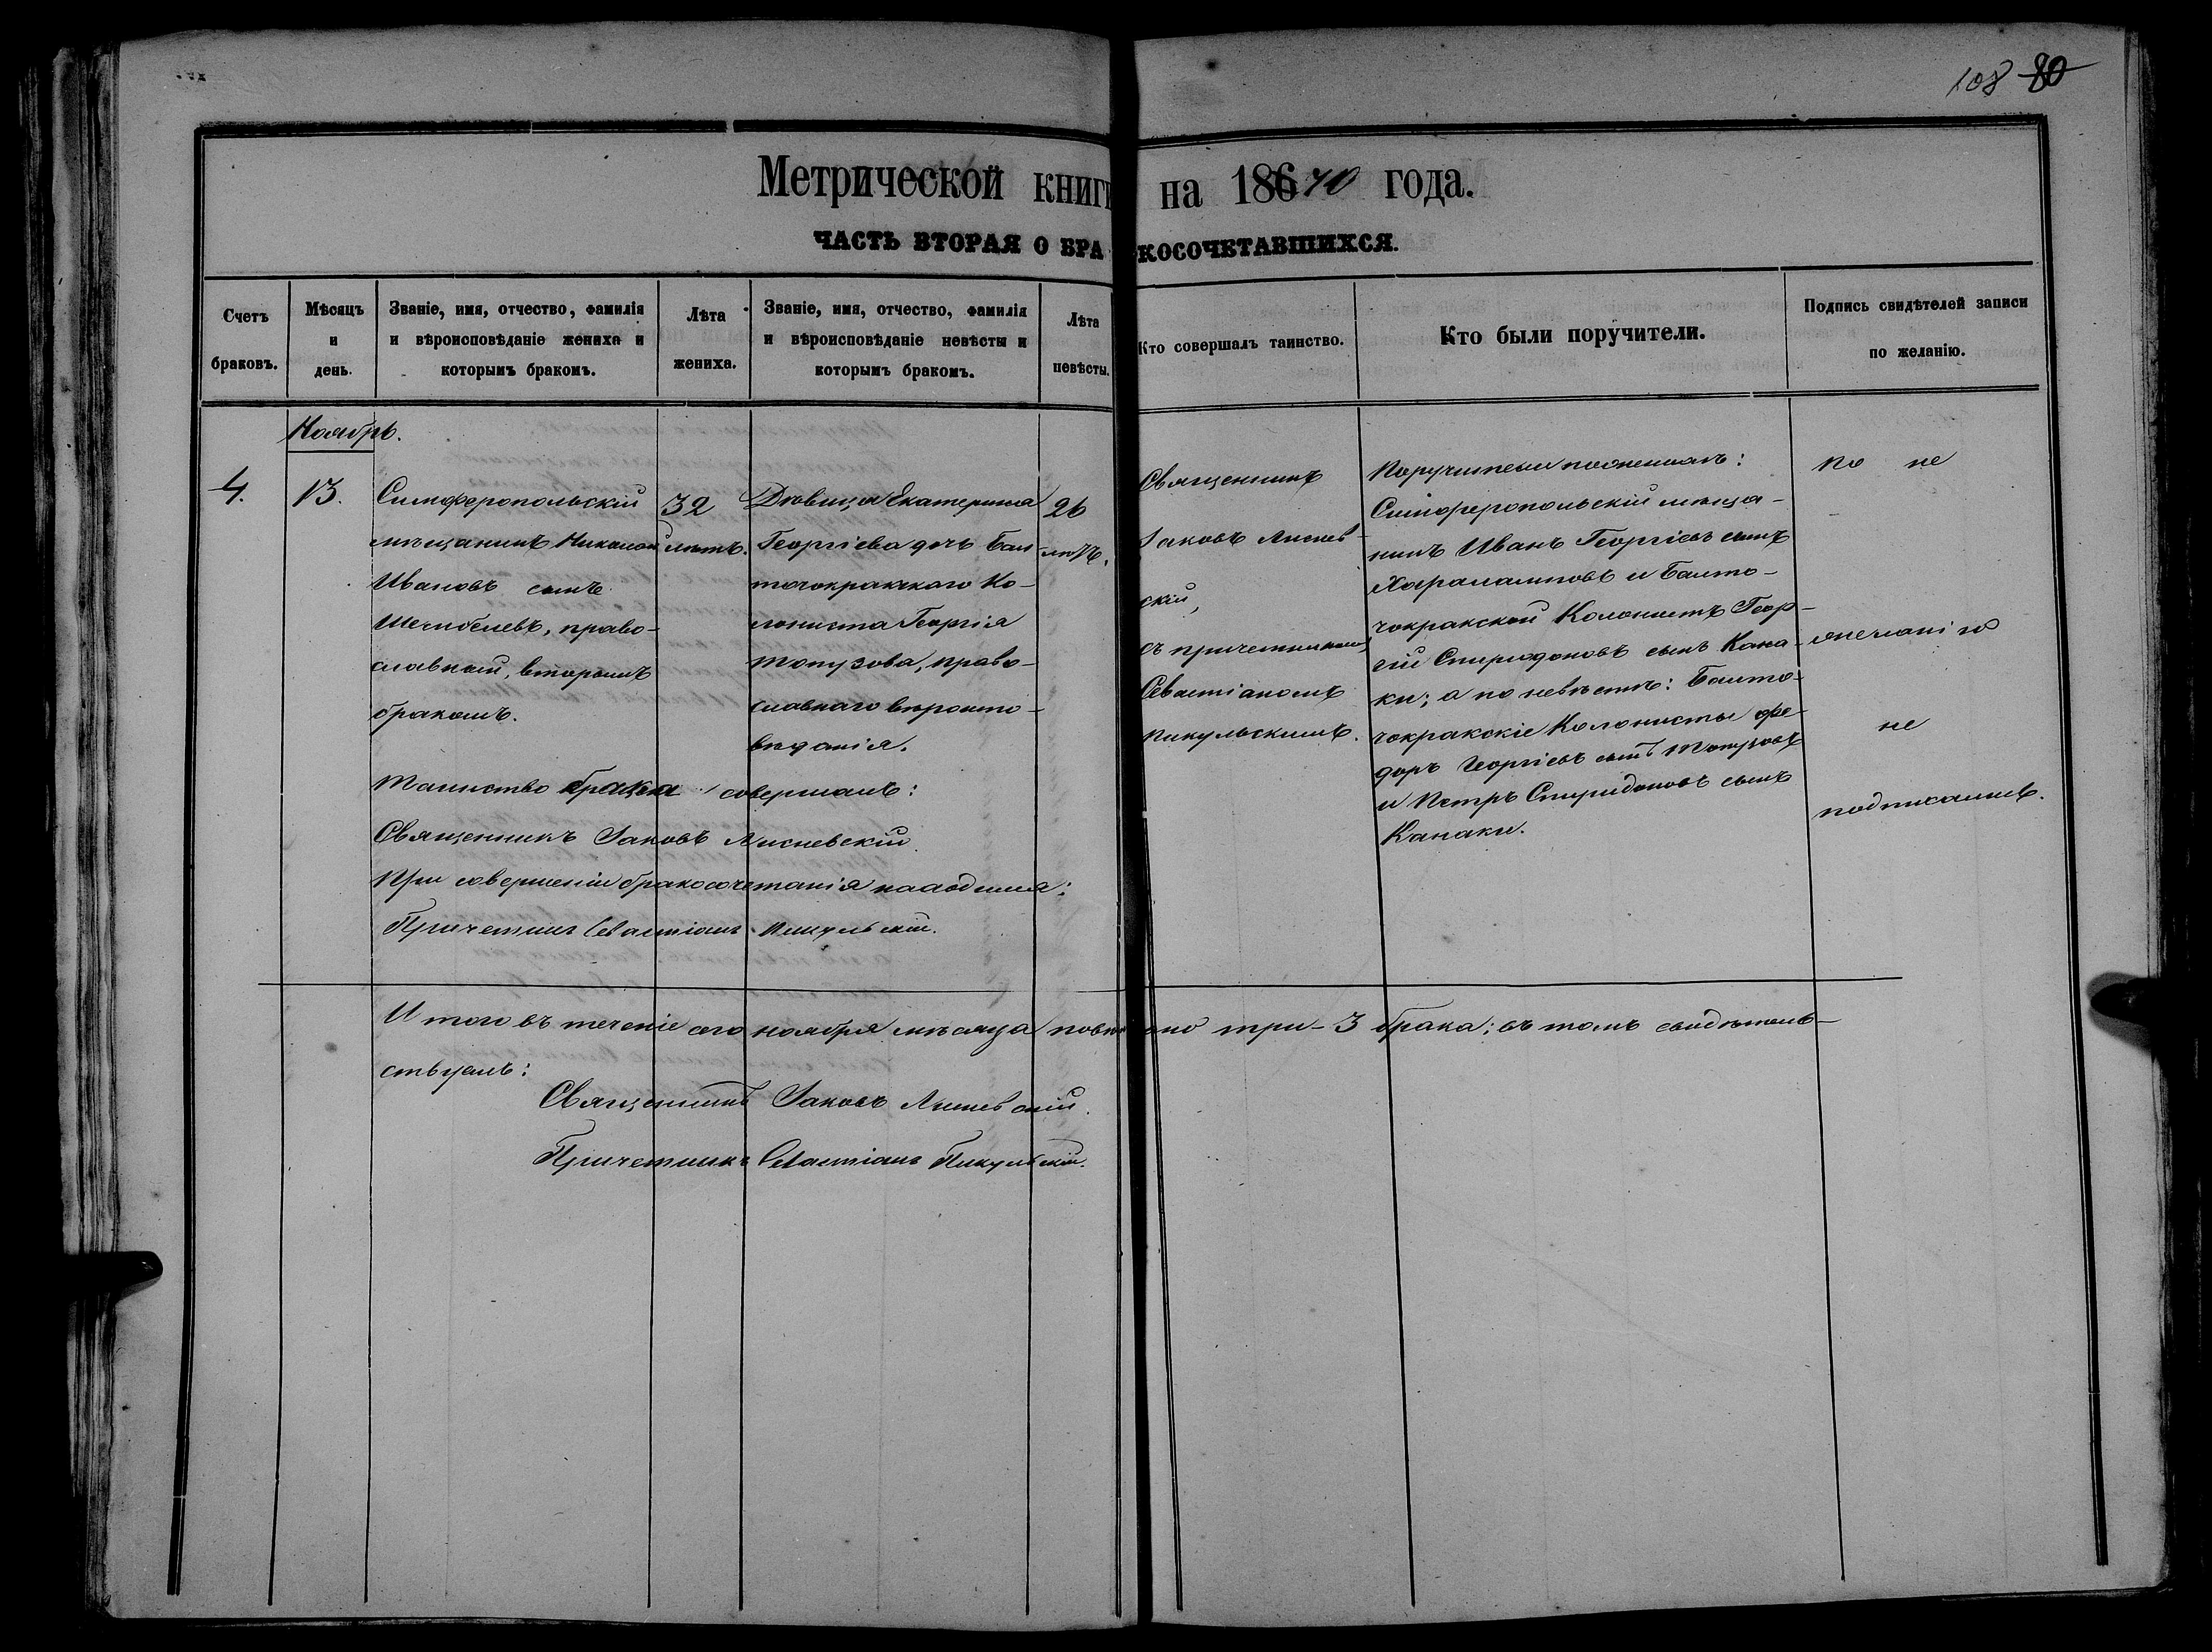 108 80
Метрической книги на 18670 года.
ЧАСТЬ ВТОРАЯ О БРАКОСОЧЕТАВШИХСЯ.
Счетъ браковъ.
Мѣсяцъ и день.
Званіе, имя, отчество, фамилія
и вѣроисповѣданіе жениха и
которымъ бракомъ.
Лѣта жениха.
Званіе, имя, отчество, фамилія
и вѣроисповѣданіе невѣсты и
которымъ бракомъ.
Лѣта невѣсты.
Кто совершалъ таинство.
Кто были поручители.
Подпись свидѣтелей записи
по желанію.
Ноябрь.
4.
13.
Симферопольскій
мѣщанинъ Николай
Ивановъ сынъ
православный, вторымъ
бракомъ.
32
лѣтъ.
Дѣвица Екатерина
Георгіева дочь Бал-
точокракскаго Ко-
лониста Георгія
Топузова, право-
славнаго вѣроиспо-
вѣданія.
26
лѣтъ.
Священникъ
Іаковъ Лиснев-
скій,
съ причетникомъ
Севастіаномъ
Пикульскимъ.
Поручители по женихѣ:
Симферопольскій мѣща-
нинъ Иванъ Георгіевъ сынъ
Хараламповъ и Балто-
чокракской Колонистъ Геор-
гій Спиридоновъ сынъ Кана-
ки; а по невѣстѣ: Балто-
чокракскіе Колонисты Фе-
доръ Георгіевъ сынъ Топузовъ
и Петръ Спиридоновъ сынъ
Канаки.
По не
желанію
не
подписались.
Таинство брака совершалъ:
Священникъ Іаковъ Лисневскій.
При совершеніи бракосочетанія находился:
Причетникъ Севастіанъ Пикульскій.
Итого въ теченіе сего ноября мѣсяца повѣнчано три - 3 брака; въ томъ свидѣтель-
ствуемъ:
Священникъ Іаковъ Лисневскій.
Причетникъ Севастіанъ Пикульскій.